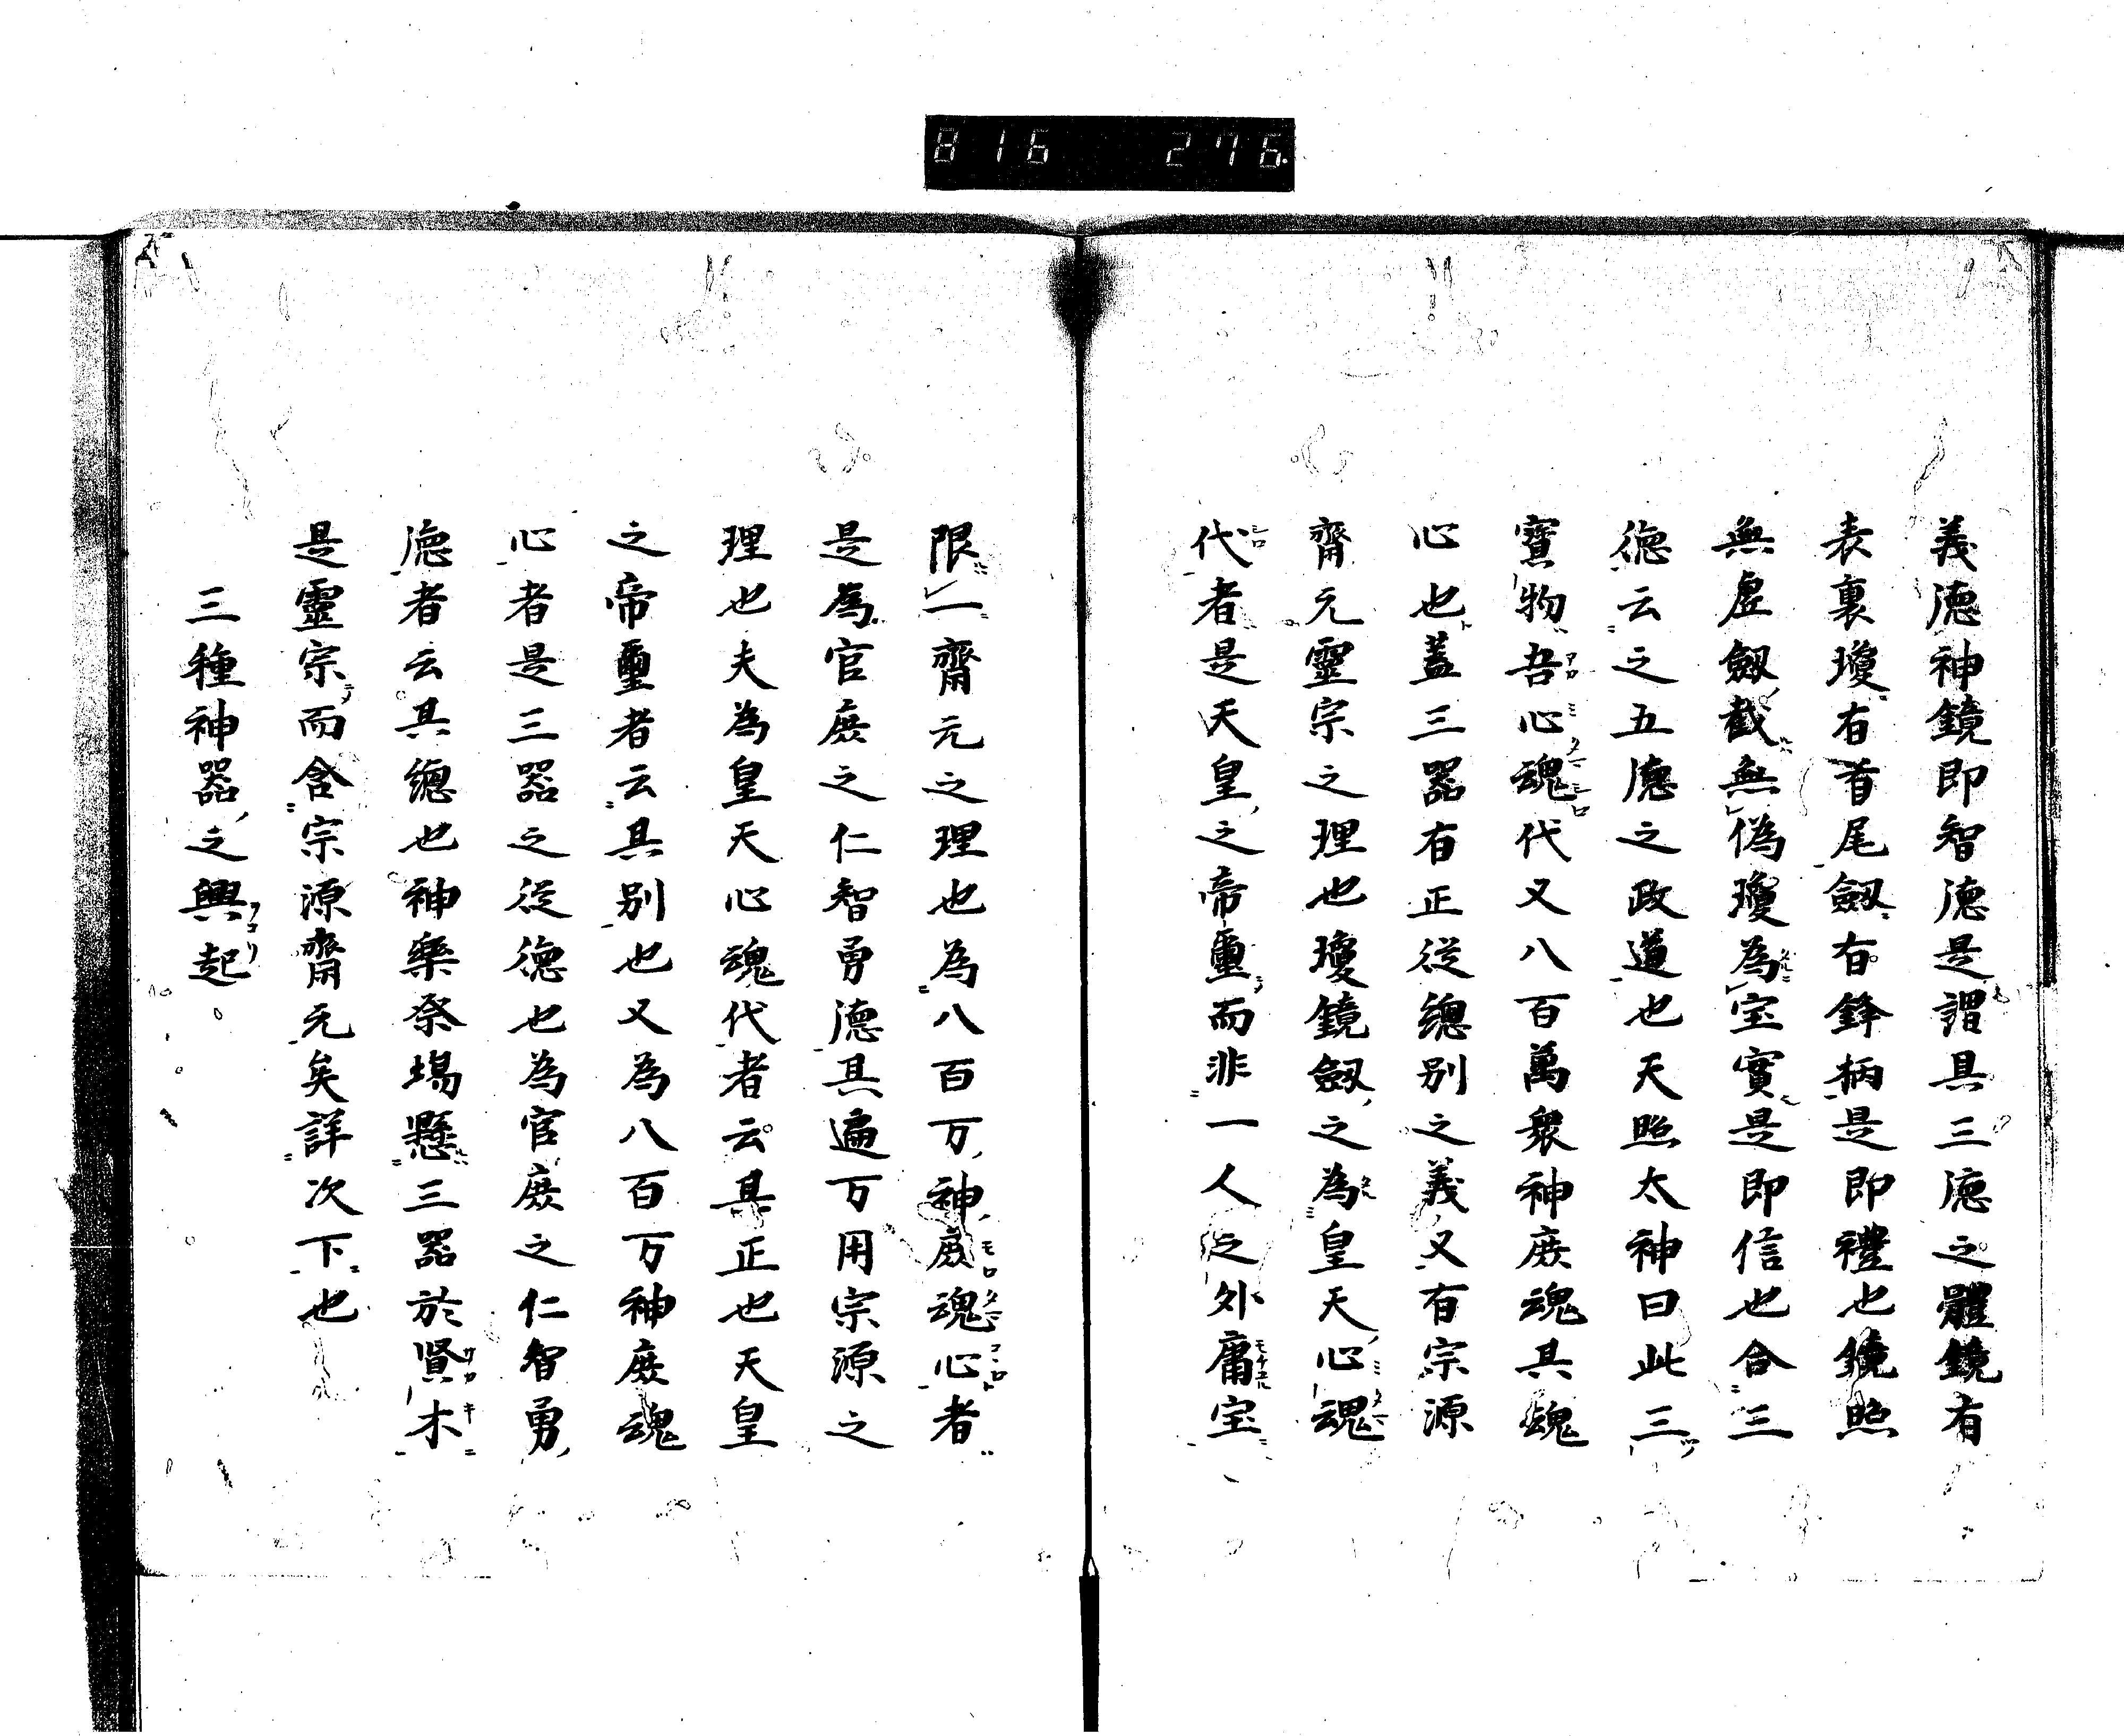 816 276
義德神鏡即智德是謂具三德之體鏡有
表裏瓊有首尾劔有鋒柄是即禮也鏡照
無虛劔截無偽瓊為宝實是即信也合三
德云之五德之政道也天照太神曰此三
寶物吾心魂代又八百萬衆神庶魂其魂
心也蓋三器有正従總別之義又有宗源
齋元靈宗之理也瓊鏡劔之為皇天心魂
代者是天皇之帝璽而非一人之外庸宝
限一齋元之理也為八百万神庶魂心者
是為官庶之仁智勇德其遍万用宗源之
理也夫為皇天心魂代者云其正也天皇
之帝璽者云其別也又為八百万神庶魂
心者是三器之従德也為官庶之仁智勇
德者云其總也神樂祭場懸三器於賢木
是靈宗而含宗源齋元矣詳次下也
三種神器之興起